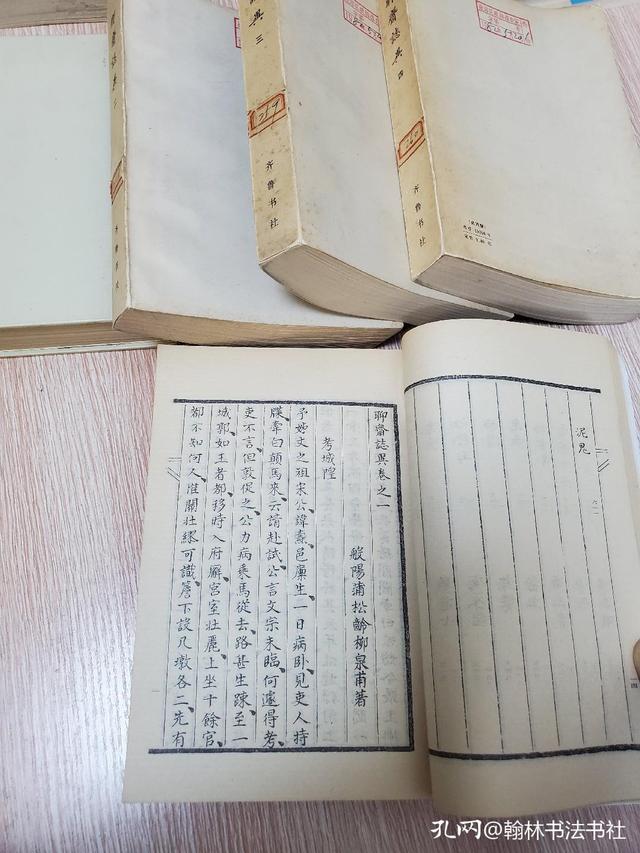 齋誌異 二
誌異 三
齋誌異 四
齐鲁书社
齐鲁书社
齐鲁书社
泥鬼
四
聊齋誌異卷之一
般陽蒲松齡柳泉甫著
考城隍
予姊丈之祖宋公諱燾、邑廩生、一日病卧、見吏人持
牒、牽白顛馬來、云請赴試、公言文宗未臨、何遽得考、
吏不言、但敦促之、公力病乘馬從去、路甚生踈、至一
城郭、如王者都、移時入府廨、宮室壯麗、上坐十餘官、
都不知何人、惟關壯繆可識、簷下設几墩各二、先有
一
孔网@翰林书法书社